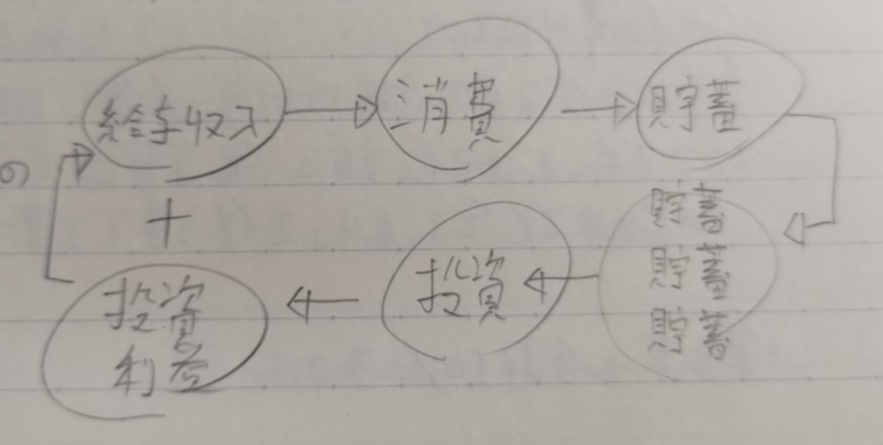 給与収入
消費
貯蓄
の
+
貯蓄
貯蓄
貯蓄
投資
投資
利益